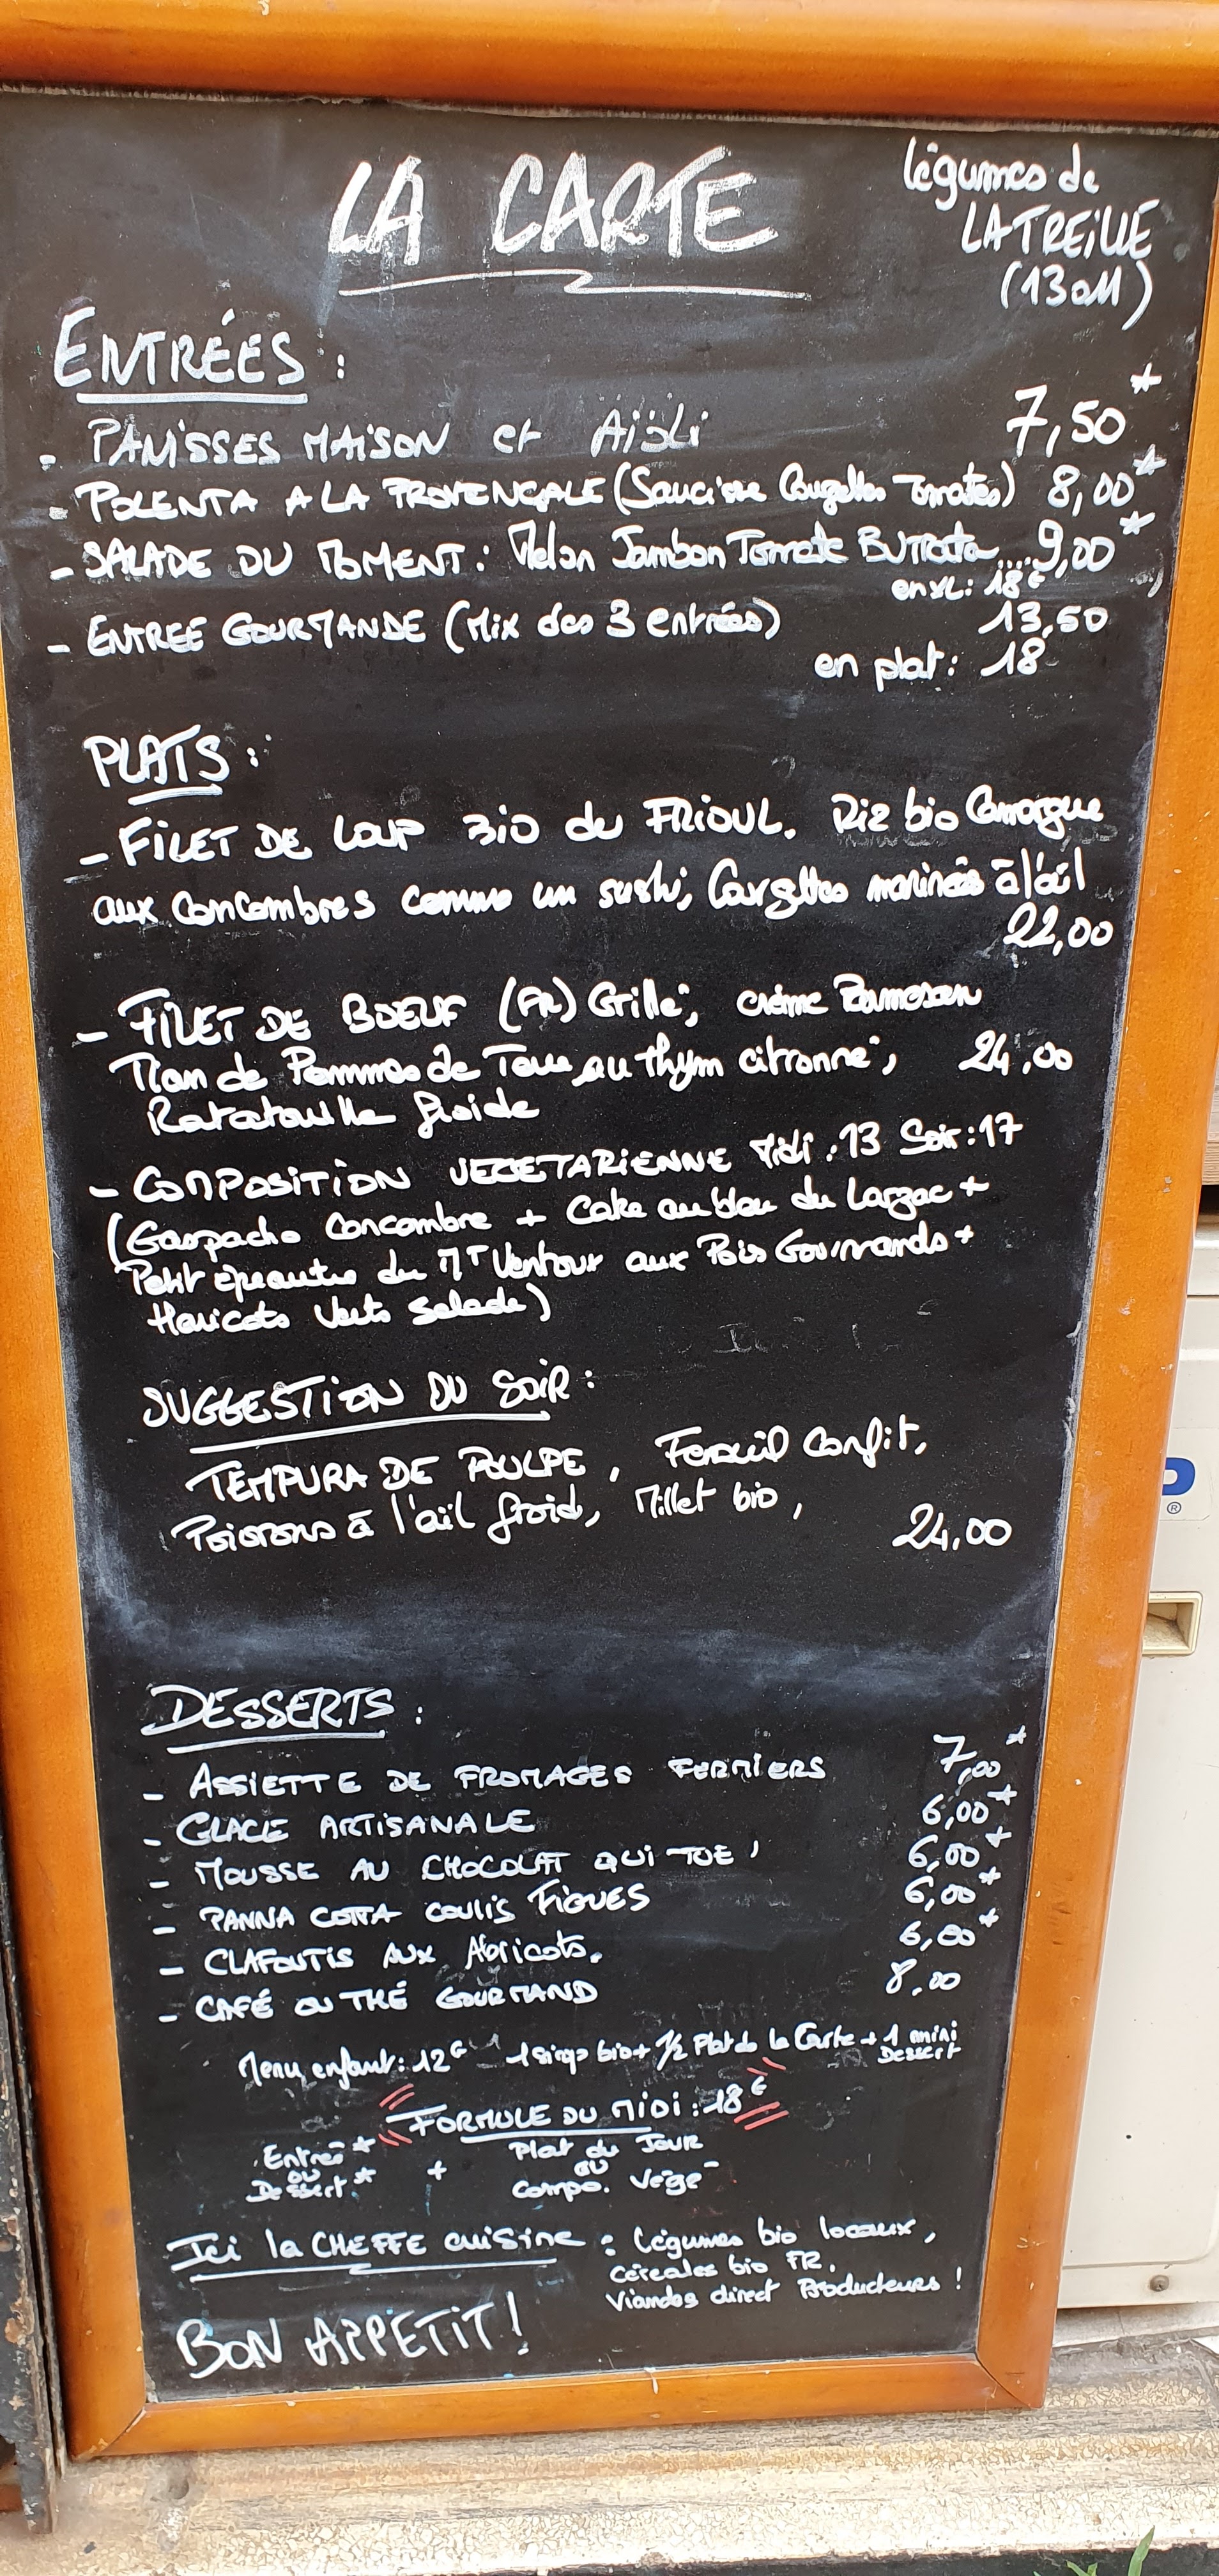 LA CARTE
légumes de
LA TREILLE
(13011)
ENTRÉES :
- PANISSES MAISON et Aïoli 7,50*
- POLENTA A LA PROVENÇALE (Saucisse Courgettes Tomates) 8,00*
- SALADE DU MOMENT : Melon Jambon Tomate BURRata ... 9,00*
en XL : 18€
- ENTREE GOURMANDE (Mix des 3 entrées) 13,50
en plat : 18
PLATS :
- FILET DE LOUP BIO du FRIOUL. Riz bio Camargue
aux concombres comme un sushi, Courgettes marinées à l'ail
22,00
- FILET DE BOEUF (FR) Grillé, crème Parmesan
Tian de Pommes de Terre au thym citronné, 24,00
Ratatouille froide
- COMPOSITION VEGETARIENNE Midi : 13 Soir : 17
(Gaspacho Concombre + Cake au bleu du Larzac +
Petit épeautre du MT Ventoux aux Pois Gourmands +
Haricots Verts Salade)
SUGGESTION DU SOIR :
TEMPURA DE POULPE, Fenouil confit,
Poivrons à l'ail froid, Millet bio,
24,00
DESSERTS :
- ASSIETTE DE FROMAGES FERMIERS 7,00*
- GLACE ARTISANALE 6,00*
- MOUSSE AU CHOCOLAT QUI TUE ! 6,00*
- PANNA COTTA COULIS FIGUES 6,00*
- CLAFOUTIS AUX Abricots. 6,00*
- CAFÉ OU THÉ GOURMAND 8,00
Menu enfant : 12€ 1 sirop bio + 1/2 Plat de la Carte + 1 mini
Dessert
FORMULE DU MIDI : 18€
Entrée* Plat du Jour
ou + ou
Dessert* Compo. Végé
Ici la CHEFFE cuisine : Légumes bio locaux,
céréales bio FR,
Viandes direct Producteurs !
BON APPETIT !
®